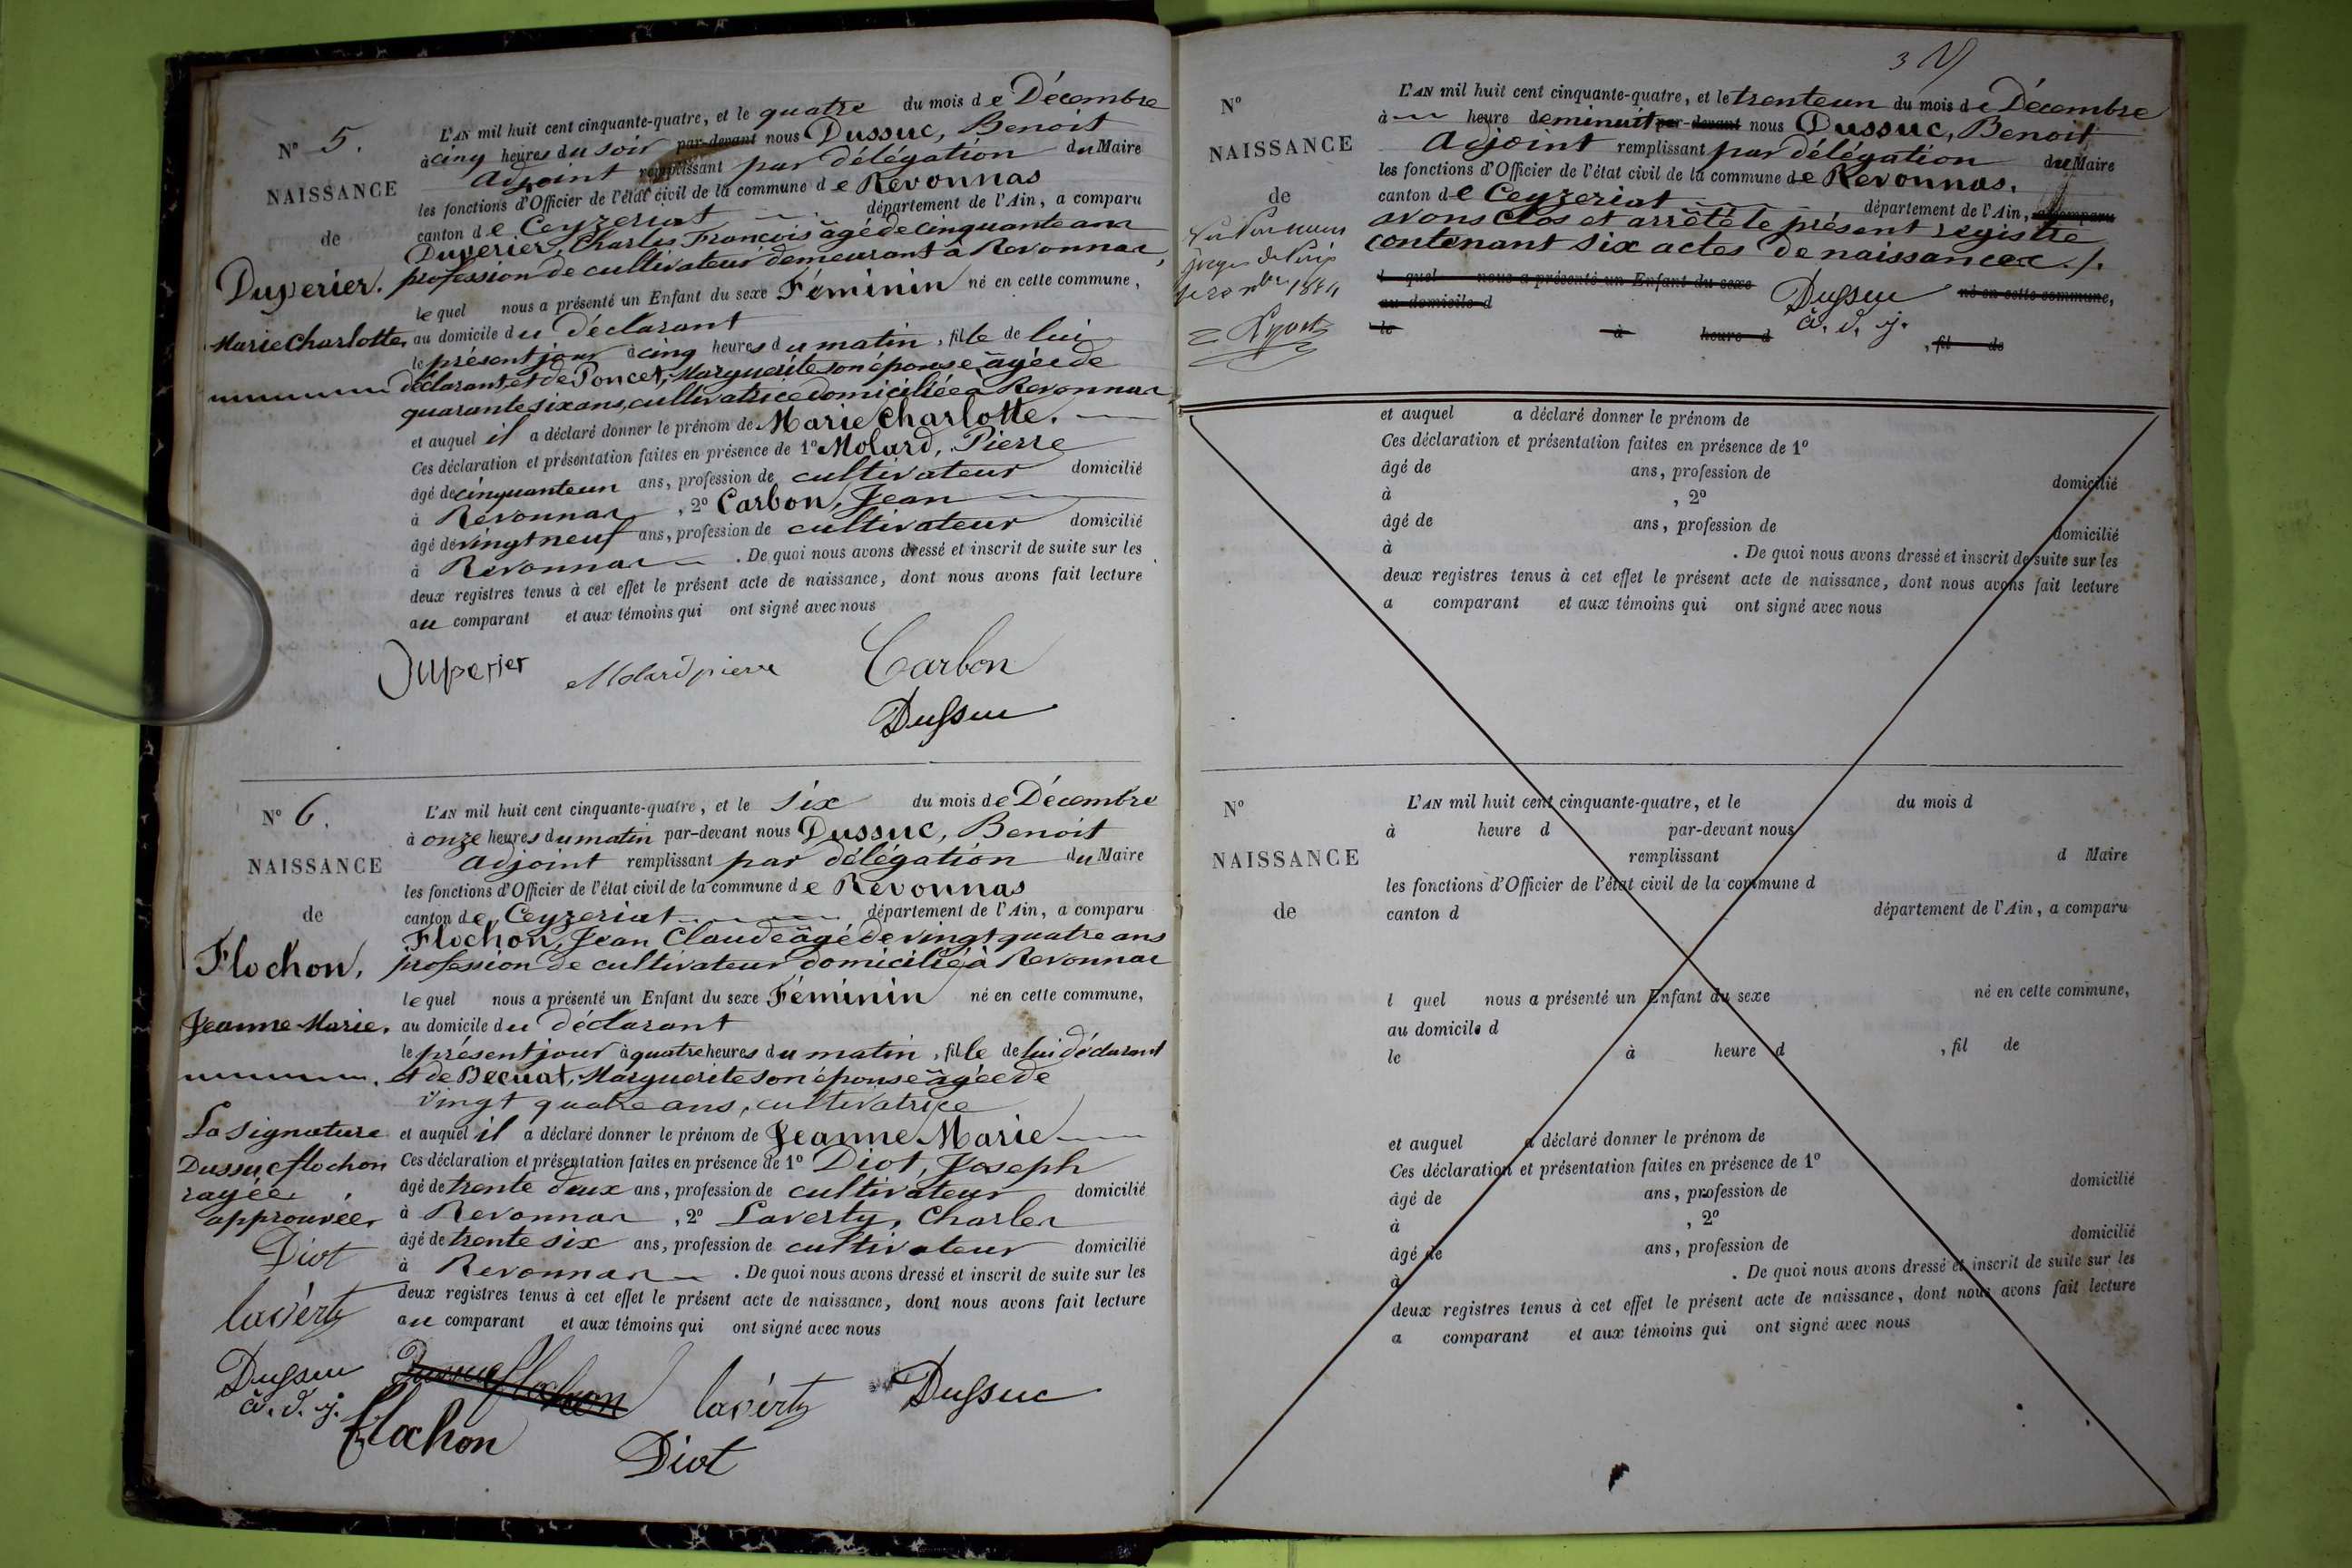 N° 5.
NAISSANCE
de
Duperier.
Marie Charlotte,
L'AN mil huit cent cinquante-quatre, et le quatre du mois de Décembre
à cinq heures du soir par-devant nous Dussuc, Benoit
Adjoint remplissant par délégation du Maire
les fonctions d'Officier de l'état civil de la commune de Revonnas
canton de Ceyzeriat département de l'Ain, a comparu
Duperier, Charles François âgé de cinquante ans
profession de cultivateur demeurant à Revonnas,
lequel nous a présenté un Enfant du sexe Féminin né en cette commune,
au domicile du déclarant
le présent jour à cinq heures du matin, fille de lui
déclarant, et de Poncet, Marguerite son épouse âgée de
quarante six ans, cultivatrice domiciliée à Revonnas
et auquel il a déclaré donner le prénom de Marie Charlotte.
Ces déclaration et présentation faites en présence de 1° Molard, Pierre
âgé de cinquante un ans, profession de cultivateur domicilié
à Revonnas, 2° Carbon, Jean
âgé de vingt neuf ans, profession de cultivateur domicilié
à Revonnas. De quoi nous avons dressé et inscrit de suite sur les
deux registres tenus à cet effet le présent acte de naissance, dont nous avons fait lecture
au comparant et aux témoins qui ont signé avec nous
Duperier Molard pierre Carbon
Dussuc
N° 6.
NAISSANCE
de
Flochon,
Jeanne Marie.
La signature
Dussuc flochon
rayée
approuvée
Diot
lavérty
Dussuc
a. d. j.
L'AN mil huit cent cinquante-quatre, et le six du mois de Décembre
à onze heures du matin par-devant nous Dussuc, Benoit
Adjoint remplissant par délégation du Maire
les fonctions d'Officier de l'état civil de la commune de Revonnas
canton de Ceyzeriat département de l'Ain, a comparu
Flochon, Jean Claude âgé de vingt quatre ans
profession de cultivateur domicilié à Revonnas
lequel nous a présenté un Enfant du sexe Féminin né en cette commune,
au domicile du déclarant
le présent jour à quatre heures du matin, fille de lui déclarant
et de Becuat, Marguerite son épouse âgée de
vingt quatre ans, cultivatrice
et auquel il a déclaré donner le prénom de Jeanne Marie
Ces déclaration et présentation faites en présence de 1° Diot, Joseph
âgé de trente deux ans, profession de cultivateur domicilié
à Revonnas, 2° Laverty, Charles
âgé de trente six ans, profession de cultivateur domicilié
à Revonnas. De quoi nous avons dressé et inscrit de suite sur les
deux registres tenus à cet effet le présent acte de naissance, dont nous avons fait lecture
au comparant et aux témoins qui ont signé avec nous
Dussuc flochon lavérty Dussuc
flochon
Diot
3
N°
NAISSANCE
de
L'AN mil huit cent cinquante-quatre, et le trente un du mois de Décembre
à heure de minuit par-devant nous Dussuc, Benoit
Adjoint remplissant par délégation du Maire
les fonctions d'Officier de l'état civil de la commune de Revonnas.
canton de Ceyzeriat département de l'Ain, a comparu
avons clos et arrêté le présent registre
contenant six actes de naissances./.
l quel nous a présenté un Enfant du sexe né en cette commune,
au domicile d
Dussuc
a. d. j.
le à heure d, fil de
et auquel a déclaré donner le prénom de
Ces déclaration et présentation faites en présence de 1°
âgé de ans, profession de domicilié
à , 2°
âgé de ans, profession de domicilié
à . De quoi nous avons dressé et inscrit de suite sur les
deux registres tenus à cet effet le présent acte de naissance, dont nous avons fait lecture
a comparant et aux témoins qui ont signé avec nous
N°
NAISSANCE
de
L'AN mil huit cent cinquante-quatre, et le du mois d
à heure d par-devant nous
remplissant d Maire
les fonctions d'Officier de l'état civil de la commune d
canton d département de l'Ain, a comparu
l quel nous a présenté un Enfant du sexe né en cette commune,
au domicile d
le à heure d , fil de
et auquel a déclaré donner le prénom de
Ces déclaration et présentation faites en présence de 1°
âgé de ans, profession de domicilié
à , 2°
âgé de ans, profession de domicilié
à . De quoi nous avons dressé et inscrit de suite sur les
deux registres tenus à cet effet le présent acte de naissance, dont nous avons fait lecture
a comparant et aux témoins qui ont signé avec nous